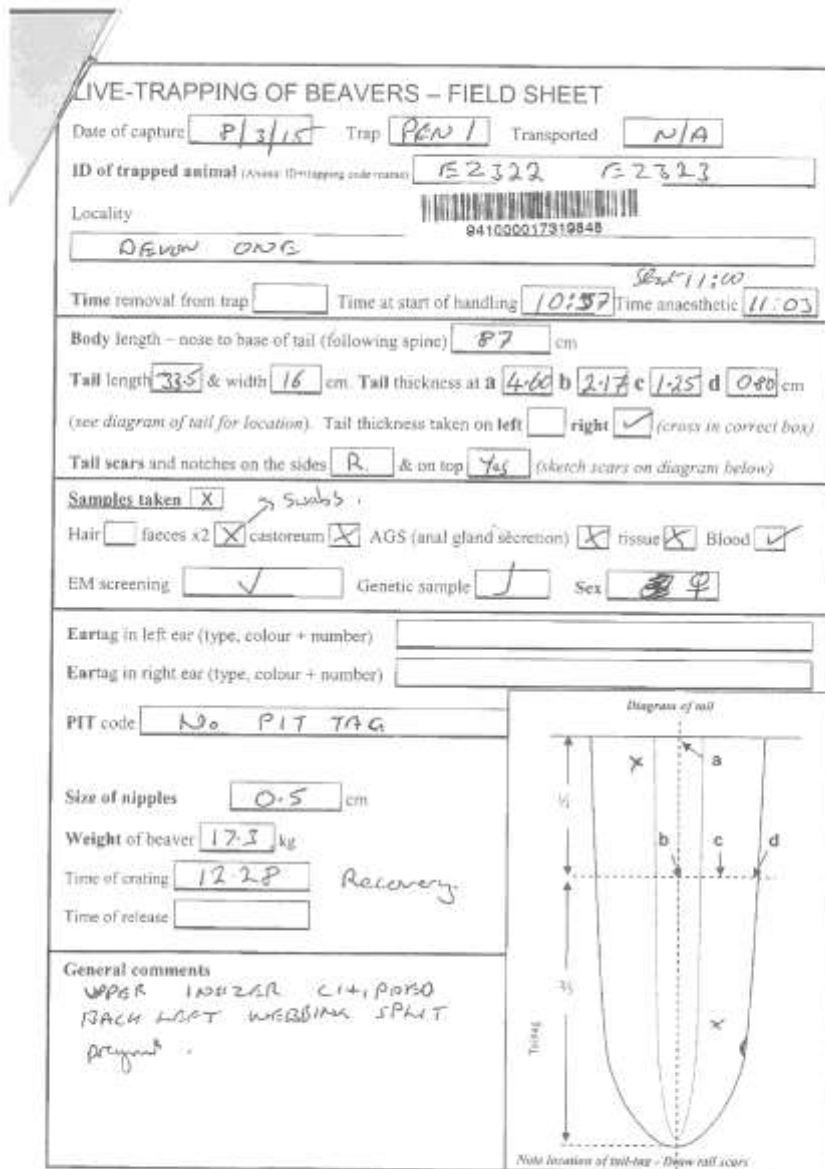 LIVE-TRAPPING OF BEAVERS – FIELD SHEET
Date of capture 8/3/15 Trap PEN 1 Transported N/A
ID of trapped animal E2322 E2323
941000017319848
Locality
DEVON ONE
Start 11:00
Time removal from trap Time at start of handling 10:57 Time anaesthetic 11:03
Body length – nose to base of tail (following spine) 87 cm
Tail length 33.5 & width 16 cm. Tail thickness at a 4.60 b 2.17 c 1.25 d 0.80 cm
(see diagram of tail for location). Tail thickness taken on left right ✓ (cross in correct box)
Tail scars and notches on the sides R. & on top Yes (sketch scars on diagram below)
Samples taken X → Swabs.
Hair faeces x2 X castoreum X AGS (anal gland secretion) X tissue X Blood ✓
EM screening ✓ Genetic sample ✓ Sex ♀
Eartag in left ear (type, colour + number)
Eartag in right ear (type, colour + number)
PIT code No PIT TAG
Size of nipples 0.5 cm
Weight of beaver 17.3 kg
Time of crating 12.28 Recovery.
Time of release
General comments
UPPER CHIPPED
BACK LEFT WEBBING SPLIT
Diagram of tail
x a
⅓
b c d
⅔
x
Tail tag
Note location of tail-tag – Draw tail scars